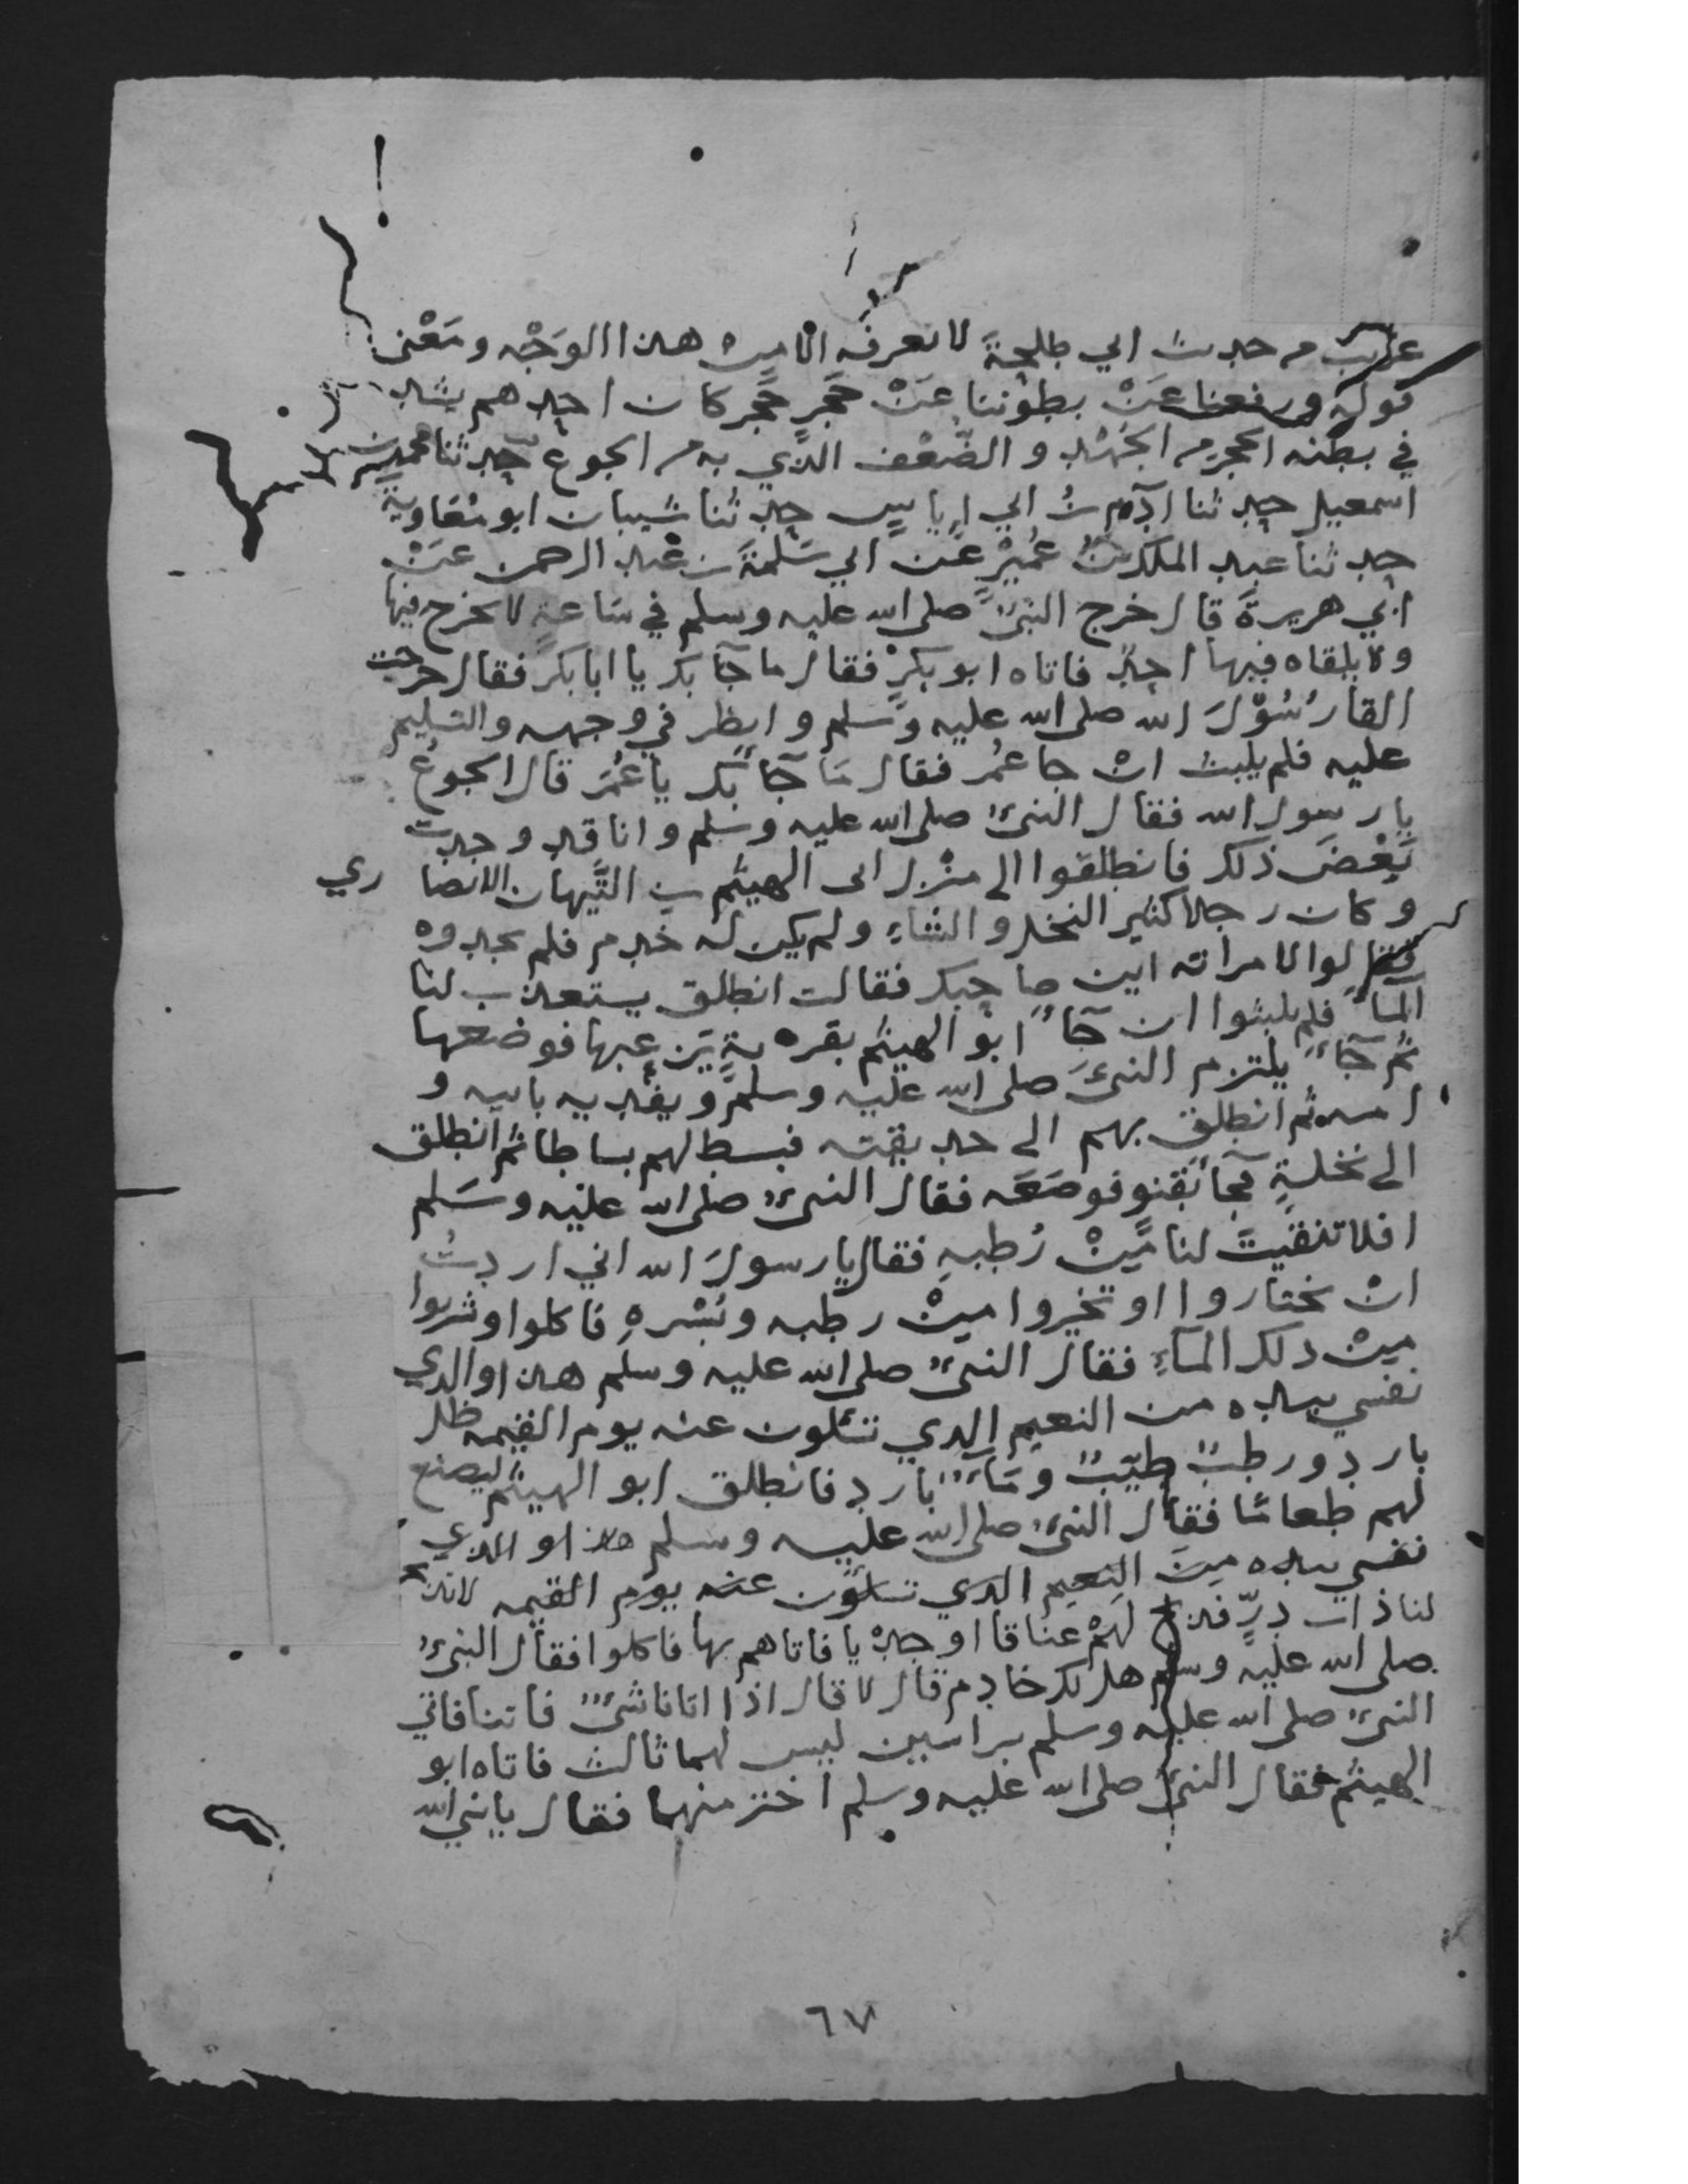 غريب من حديث ابي طلحة لا نعرفه الا من هذا الوَجْه ومَعْنى
قوله ورفعنا عَنْ بطوننا عَنْ حَجَرٍ حَجَر كان احدهم يشد
في بطنه الحجر من الجَهْد والضُّعْف الذي به من الجوع حدثنا محمد بن
اسمعيل حدثنا آدم بنُ ابي اياس حدثنا شيبان ابو مُعَاوية
حدثنا عبد الملك بنُ عُمَيْرٍ عَن ابي سَلَمَةَ بن عبد الرحمن عَنْ
ابي هريرةَ قال خرج النبيُّ صلى الله عليه وسلم في سَاعةٍ لا يخرج فيها
ولا يلقاه فيها احد فاتاه ابو بكرٍ فقال ما جآ بك يا ابا بكر فقال خرجت
القا رُسُوْلَ الله صلى الله عليه وَسَلم وانظر في وجهه والتسليم
عليه فلم يلبث انْ جا عُمر فقال مَا جآ بَك يا عُمَر قال الجوعُ
يا رسول الله فقال النبيُّ صلى الله عليه وسَلم وانا قد وجدت
بَعْضَ ذلك فانطلقوا الى منْزل ابى الهيثم بن التَّيهان الانصا ري
وكان رجلا كثير النخل والشاءِ ولم يكن له خدم فلم يجدوه
فقالوا لامراته اين صاحبك فقالت انطلق يستعذب لنا
المآ فلم يلبثوا ان جآءَ ابو الهيثم بقربةٍ يَزعبها فوضعها
ثم جآءَ يلتزم النبيَّ صلى الله عليه وسلم ويفديه بابيه و
امه ثم انطلق بهم الى حديقته فبسط لهم بساطا ثم انطلق
الى نخلةٍ فجآ بقنوٍ فوضَعَه فقال النبيُّ صلى الله عليه وسَلم
افلا تنقيتَ لنا مِّنْ رُطبهِ فقال يا رسولَ الله اني اردتُ
انْ تختاروا او تخيروا مِنْ رطبه وبُسْرهِ فاكلوا وشربوا
مِنْ ذلك المآءِ فقال النبيُّ صلى الله عليه وسلم هذا والذي
نفسي بيده من النعيم الذي تسئلون عنه يوم القيمه ظل
بارد ورطبٌ طيّبٌ ومَآءٌ بارد فانطلق ابو الهيثم ليصنع
لهم طعامًا فقال النبيُّ صلى الله عليه وسلم هذا والذي
نفسي بيده مِنَ النعيم الذي تسلون عنه يوم القيمه لاتذبحن
لنا ذات درٍّ فذبح لهُمْ عناقا او جدْيا فاتاهم بها فاكلوا فقال النبيُّ
صلى الله عليه وسلم هل لك خادم قال لا قال اذا اتانا شيٌ فاتنا فاتي
النبيُّ صلى الله عليه وسلم براسين ليس لهما ثالث فاتاه ابو
الهيثم فقال النبيُّ صلى الله عليه وسلم اختر منهما فقال يا نبي الله
٦٧